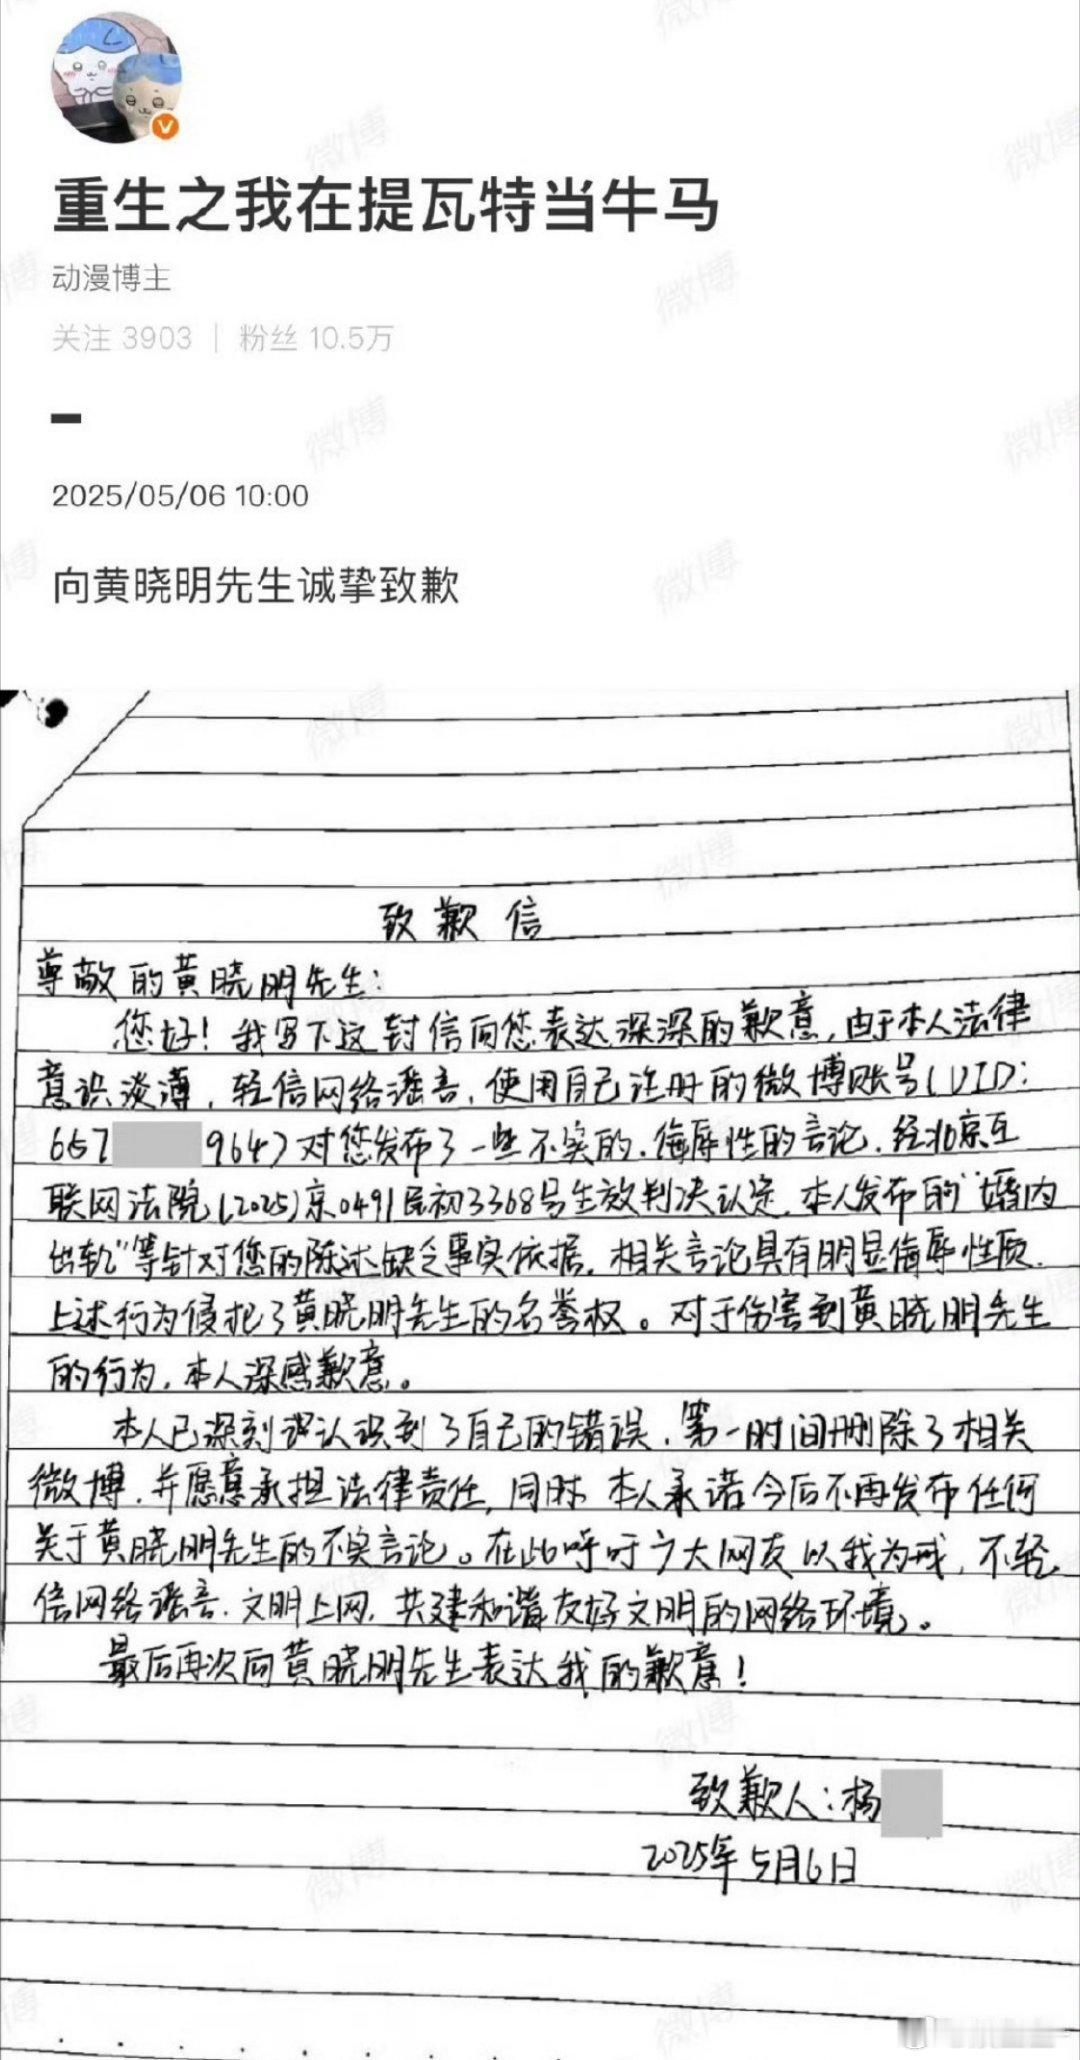 重生之我在提瓦特当牛马
动漫博主
关注 3903 | 粉丝 10.5万
2025/05/06 10:00
向黄晓明先生诚挚致歉
致歉信
尊敬的黄晓明先生:
您好!我写下这封信向您表达深深的歉意,由于本人法律
意识淡薄,轻信网络谣言,使用自己注册的微博账号(UID:
657 9647)对您发布了一些不实的、侮辱性的言论,经北京互
联网法院(2025)京0491民初3368号生效判决认定,本人发布的"婚内
出轨"等针对您的陈述缺乏事实依据,相关言论具有明显侮辱性质.
上述行为侵犯了黄晓明先生的名誉权。对于伤害到黄晓明先生
的行为,本人深感歉意。
本人已深刻认识到了自己的错误,第一时间删除了相关
微博,并愿意承担法律责任,同时本人承诺今后不再发布任何
关于黄晓明先生的不实言论。在此呼吁广大网友以我为戒,不轻
信网络谣言.文明上网,共建和谐友好文明的网络环境。
最后再次向黄晓明先生表达我的歉意!
致歉人:杨
2025年5月6日
微博